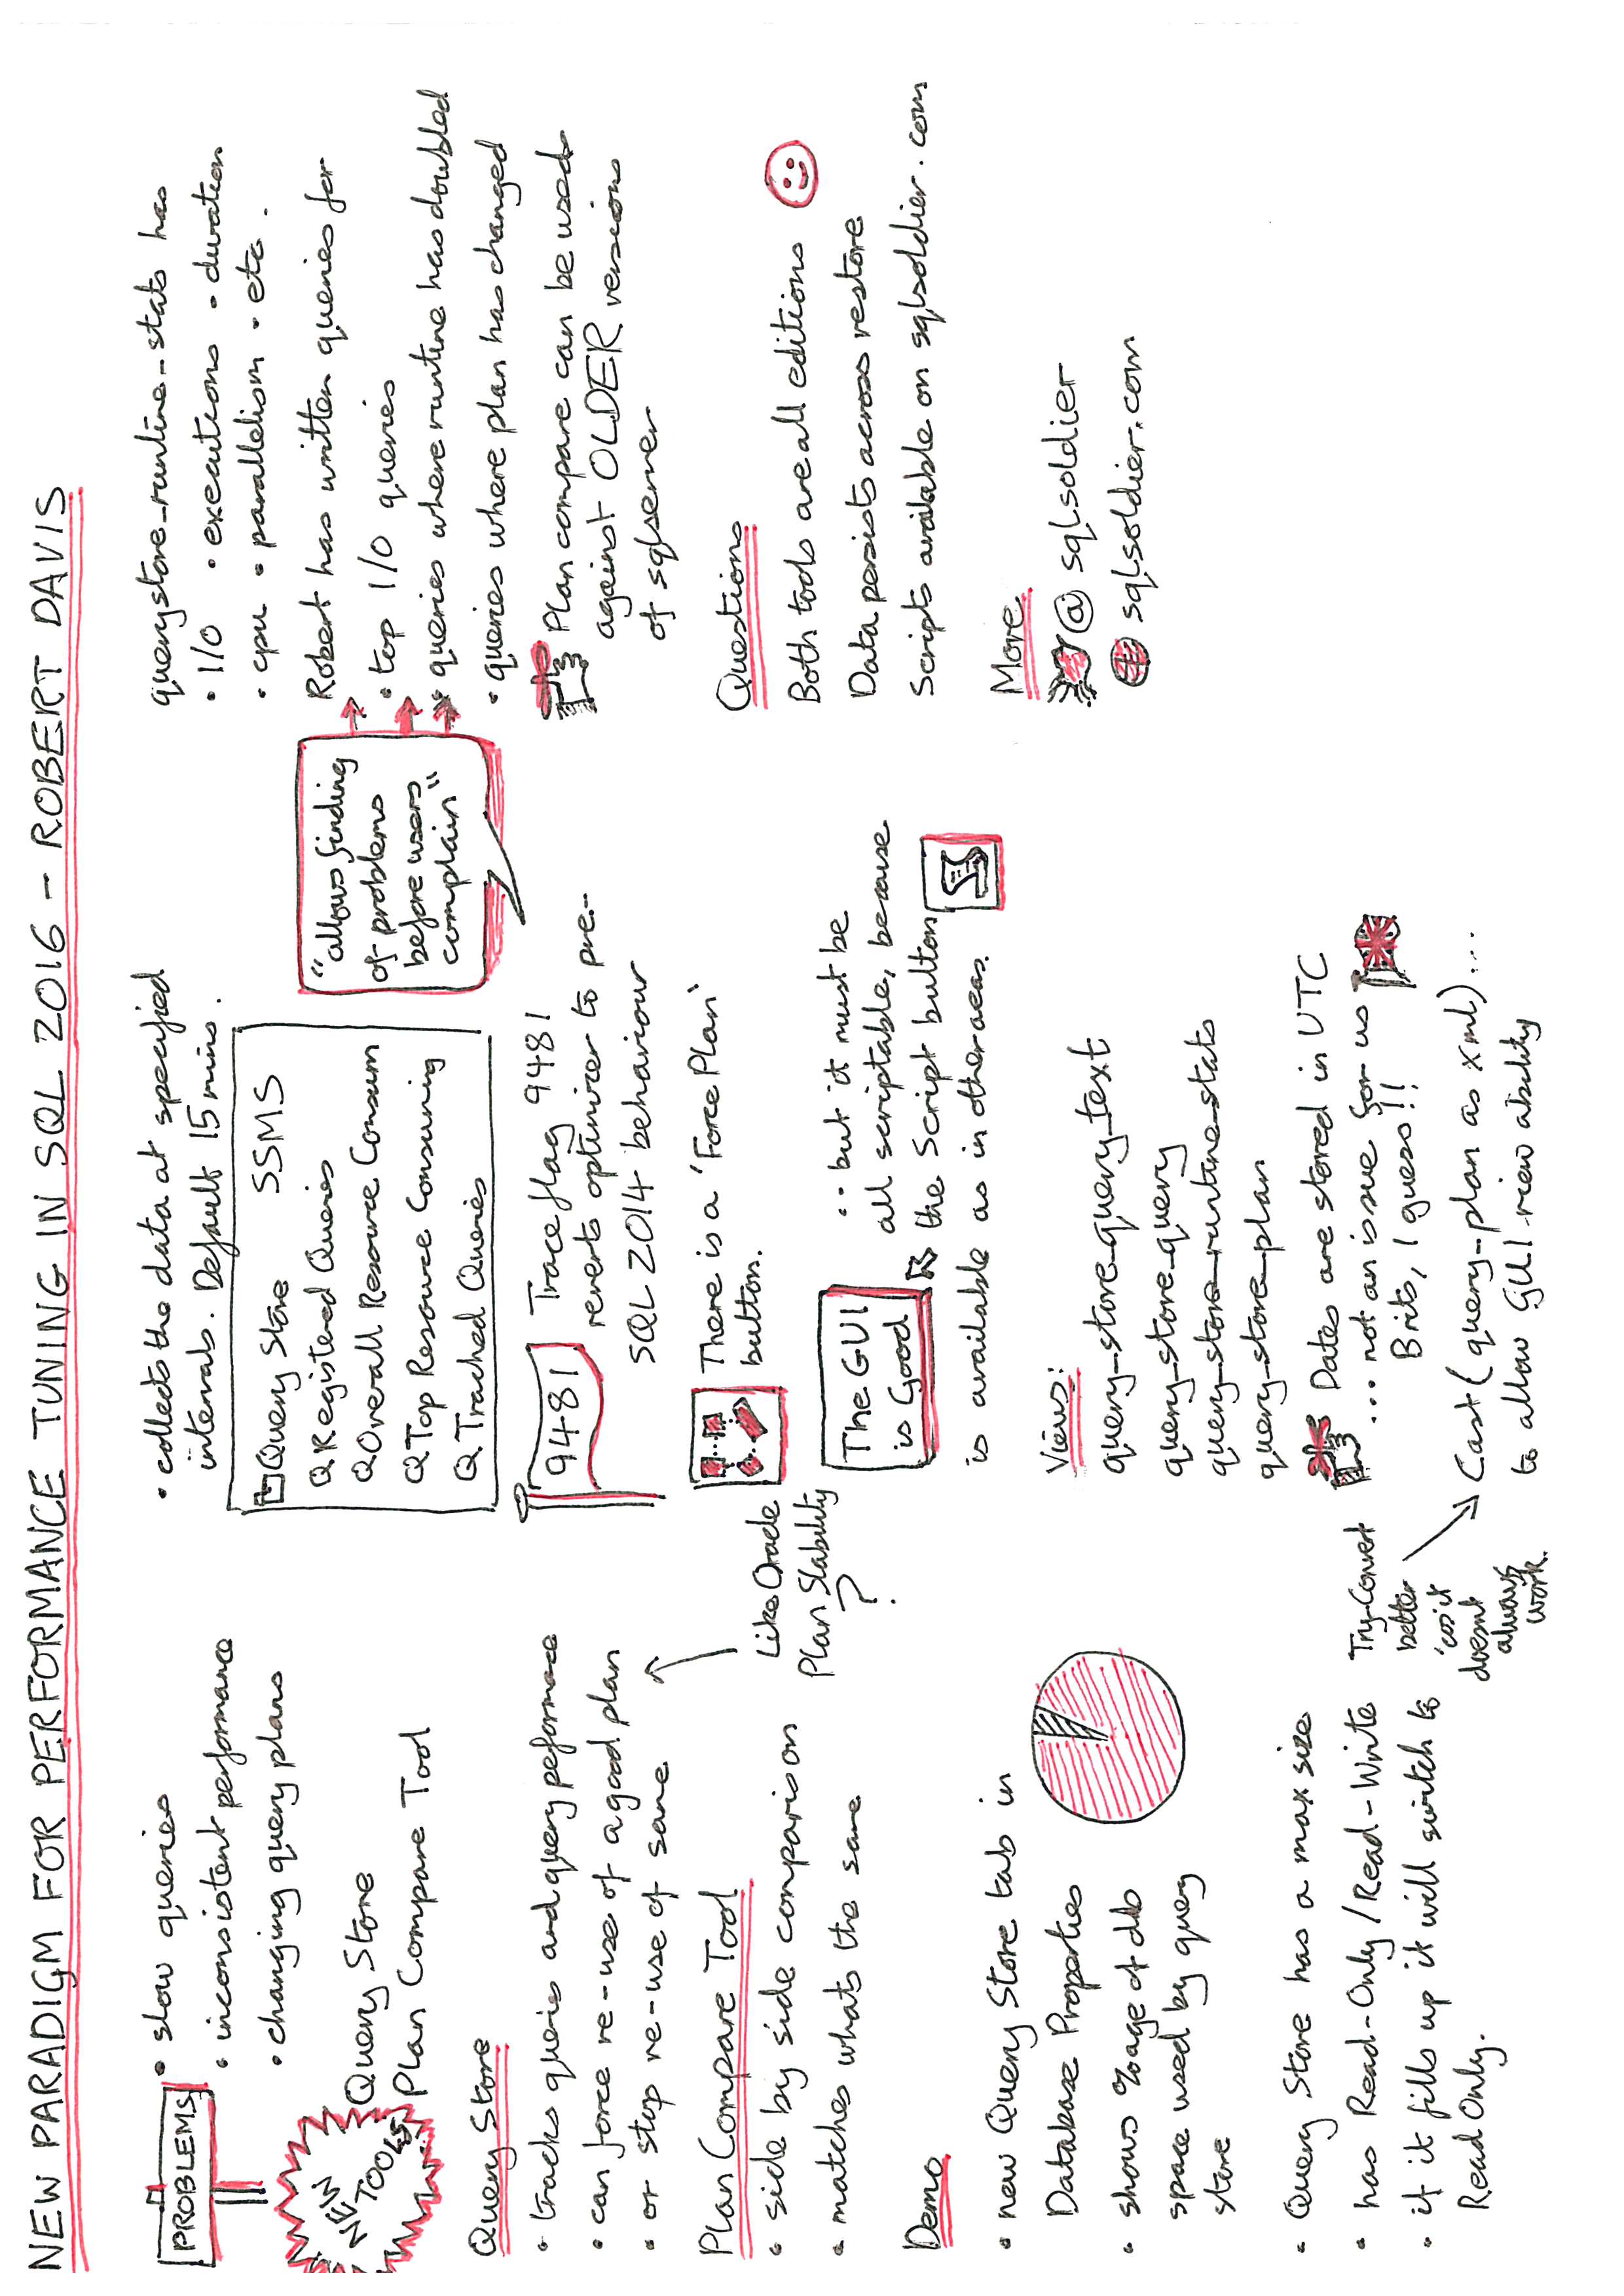 NEW PARADIGM FOR PERFORMANCE TUNING IN SQL 2016 - ROBERT DAVIS
PROBLEMS
• slow queries
• inconsistent performance
• changing query plans
NEW
TOOLS
Query Store
Plan Compare Tool
Query Store
• tracks queries and query peformace
• can force re-use of a good plan
• or stop re-use of same
Like Oracle
Plan Stability
?
Plan Compare Tool
• side by side comparison
• matches whats the same
Demo
• new Query Store tab in
Database Properties
• shows %age of db
space used by query
store
• Query Store has a max size
• has Read-Only/Read-Write
• if it fills up it will switch to
Read Only.
• collects the data at specified
intervals. Default 15 mins.
Query Store SSMS
Q Registered Queries
Q Overall Resource Consum
Q Top Resource Consuming
Q Tracked Queries
9481
Trace flag 9481
reverts optimizer to pre-
SQL 2014 behaviour
There is a 'Force Plan'
button.
The GUI
is Good
...but it must be
all scriptable, because
the Script button
is available as in other areas.
Views:
query_store_query_text
query_store_query
query_store_runtime_stats
query_store_plan
Dates are stored in UTC
...not an issue for us
Brits, I guess!!
Try-Convert
better
'cos it
doesnt
always
work.
Cast (query-plan as xml)...
to allow GUI-view ability
querystore_runtime_stats has
• I/O • executions • duration
• cpu • parallelism • etc.
"allows finding
of problems
before users
complain"
Robert has written queries for
• top I/O queries
• queries where runtime has doubled
• queries where plan has changed
Plan compare can be used
against OLDER versions
of sqlserver
Questions
Both tools are all editions
Data persists across restore
Scripts available on sqlsoldier.com
More
@sqlsoldier
sqlsoldier.com